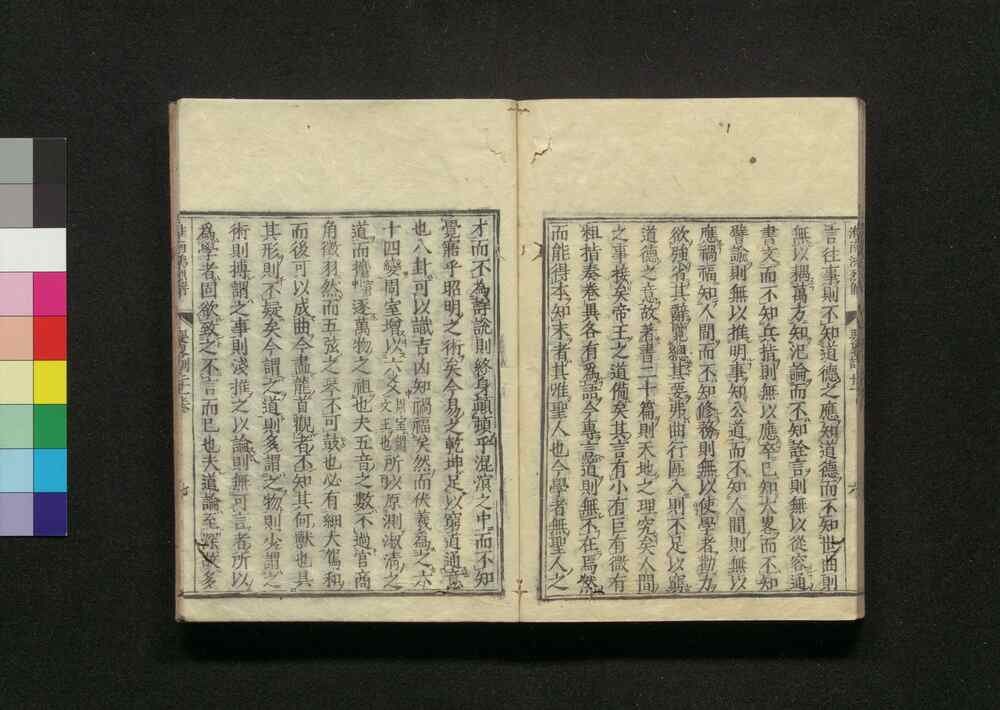 言往事則不知道德之應知道德而不知世曲則
無以耦萬方知氾論而不知詮言則無以從容通
書文而不知兵指則無以應卒已知大畧而不知
譬諭則無以推明事知公道而不知人間則無以
應禍福知人間而不知修務則無以使學者勸力
欲強省其辭覽總其要弗曲行區入則不足以窮
道德之意故著書二十篇則天地之理究矣人間
之事接矣帝王之道備矣其言有小有巨有微有
粗指奏卷異各有為語今專言道則無不在焉然
而能得本知末者其唯聖人也今學者無聖人之
才而不為詳說則終身顛頓乎混溟之中而不知
覺寤乎昭明之術矣今易之乾坤足以窮道通意
也八卦可以識吉凶知禍福矣然而伏羲為之六
十四變周室增以六爻周室謂文王也所以原測淑清之
道而攟逐萬物之祖也夫五音之數不過宮商
角徵羽然而五弦之琴不可鼓也必有細大駕和
而後可以成曲今畫龍首觀者不知其何獸也具
其形則不疑矣今謂之道則多謂之物則少謂之
術則博謂之事則淺推之以論則無可言者所以
為學者固欲致之不言而已也夫道論至深故多
七